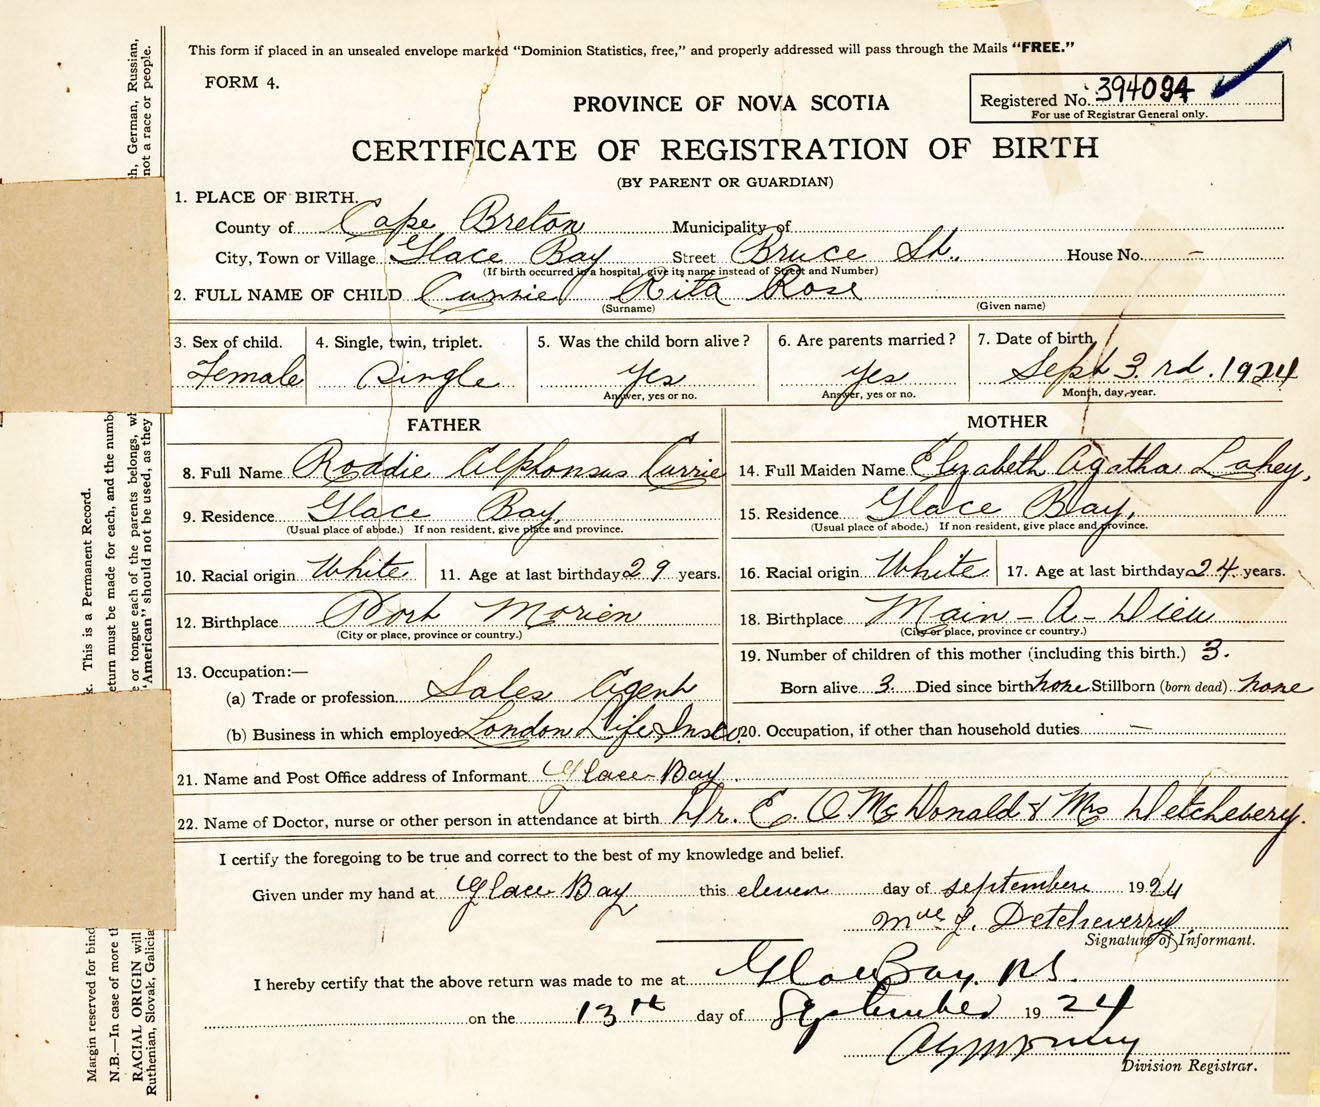 This form if placed in an unsealed envelope marked "Dominion Statistics, free," and properly addressed will pass through the Mails "FREE."
FORM 4.
Registered No. 394094
For use of Registrar General only.
PROVINCE OF NOVA SCOTIA
CERTIFICATE OF REGISTRATION OF BIRTH
(BY PARENT OR GUARDIAN)
1. PLACE OF BIRTH.
County of Cape Breton Municipality of
City, Town or Village Glace Bay Street Bruce St., House No. -
(If birth occurred in a hospital, give its name instead of Street and Number)
2. FULL NAME OF CHILD Currie Rita Rose
(Surname) (Given name)
3. Sex of child. 4. Single, twin, triplet. 5. Was the child born alive? 6. Are parents married? 7. Date of birth
Female Single Yes Yes Sept 3rd. 1924
Answer, yes or no. Answer, yes or no. Month, day, year.
FATHER
8. Full Name Roddie Alphonsus Currie
9. Residence Glace Bay,
(Usual place of abode.) If non resident, give place and province.
10. Racial origin White 11. Age at last birthday 29 years.
12. Birthplace Port Morien
(City or place, province or country.)
13. Occupation:—
(a) Trade or profession Sales Agent
(b) Business in which employed London Life Ins Co
MOTHER
14. Full Maiden Name Elizabeth Agatha Lahey,
15. Residence Glace Bay,
(Usual place of abode.) If non resident, give place and province.
16. Racial origin White 17. Age at last birthday 24 years.
18. Birthplace Main-A-Dieu
(City or place, province or country.)
19. Number of children of this mother (including this birth.) 3.
Born alive 3. Died since birth none Stillborn (born dead) none
20. Occupation, if other than household duties —
21. Name and Post Office address of Informant Glace Bay.
22. Name of Doctor, nurse or other person in attendance at birth Dr. E. O McDonald & Mrs Detchevery.
I certify the foregoing to be true and correct to the best of my knowledge and belief.
Given under my hand at Glace Bay this eleven day of septembere 1924
Detcheverry
Signature of Informant.
I hereby certify that the above return was made to me at Glace Bay, N.S.
on the 13th day of September 1924
Division Registrar.
Margin reserved for bind
k. This is a Permanent Record.
N.B.—In case of more th
eturn must be made for each, and the numbe
RACIAL ORIGIN will
e or tongue each of the parents belongs, wh
h, German, Russian,
Ruthenian, Slovak, Galicia
"American" should not be used, as they
not a race or people.